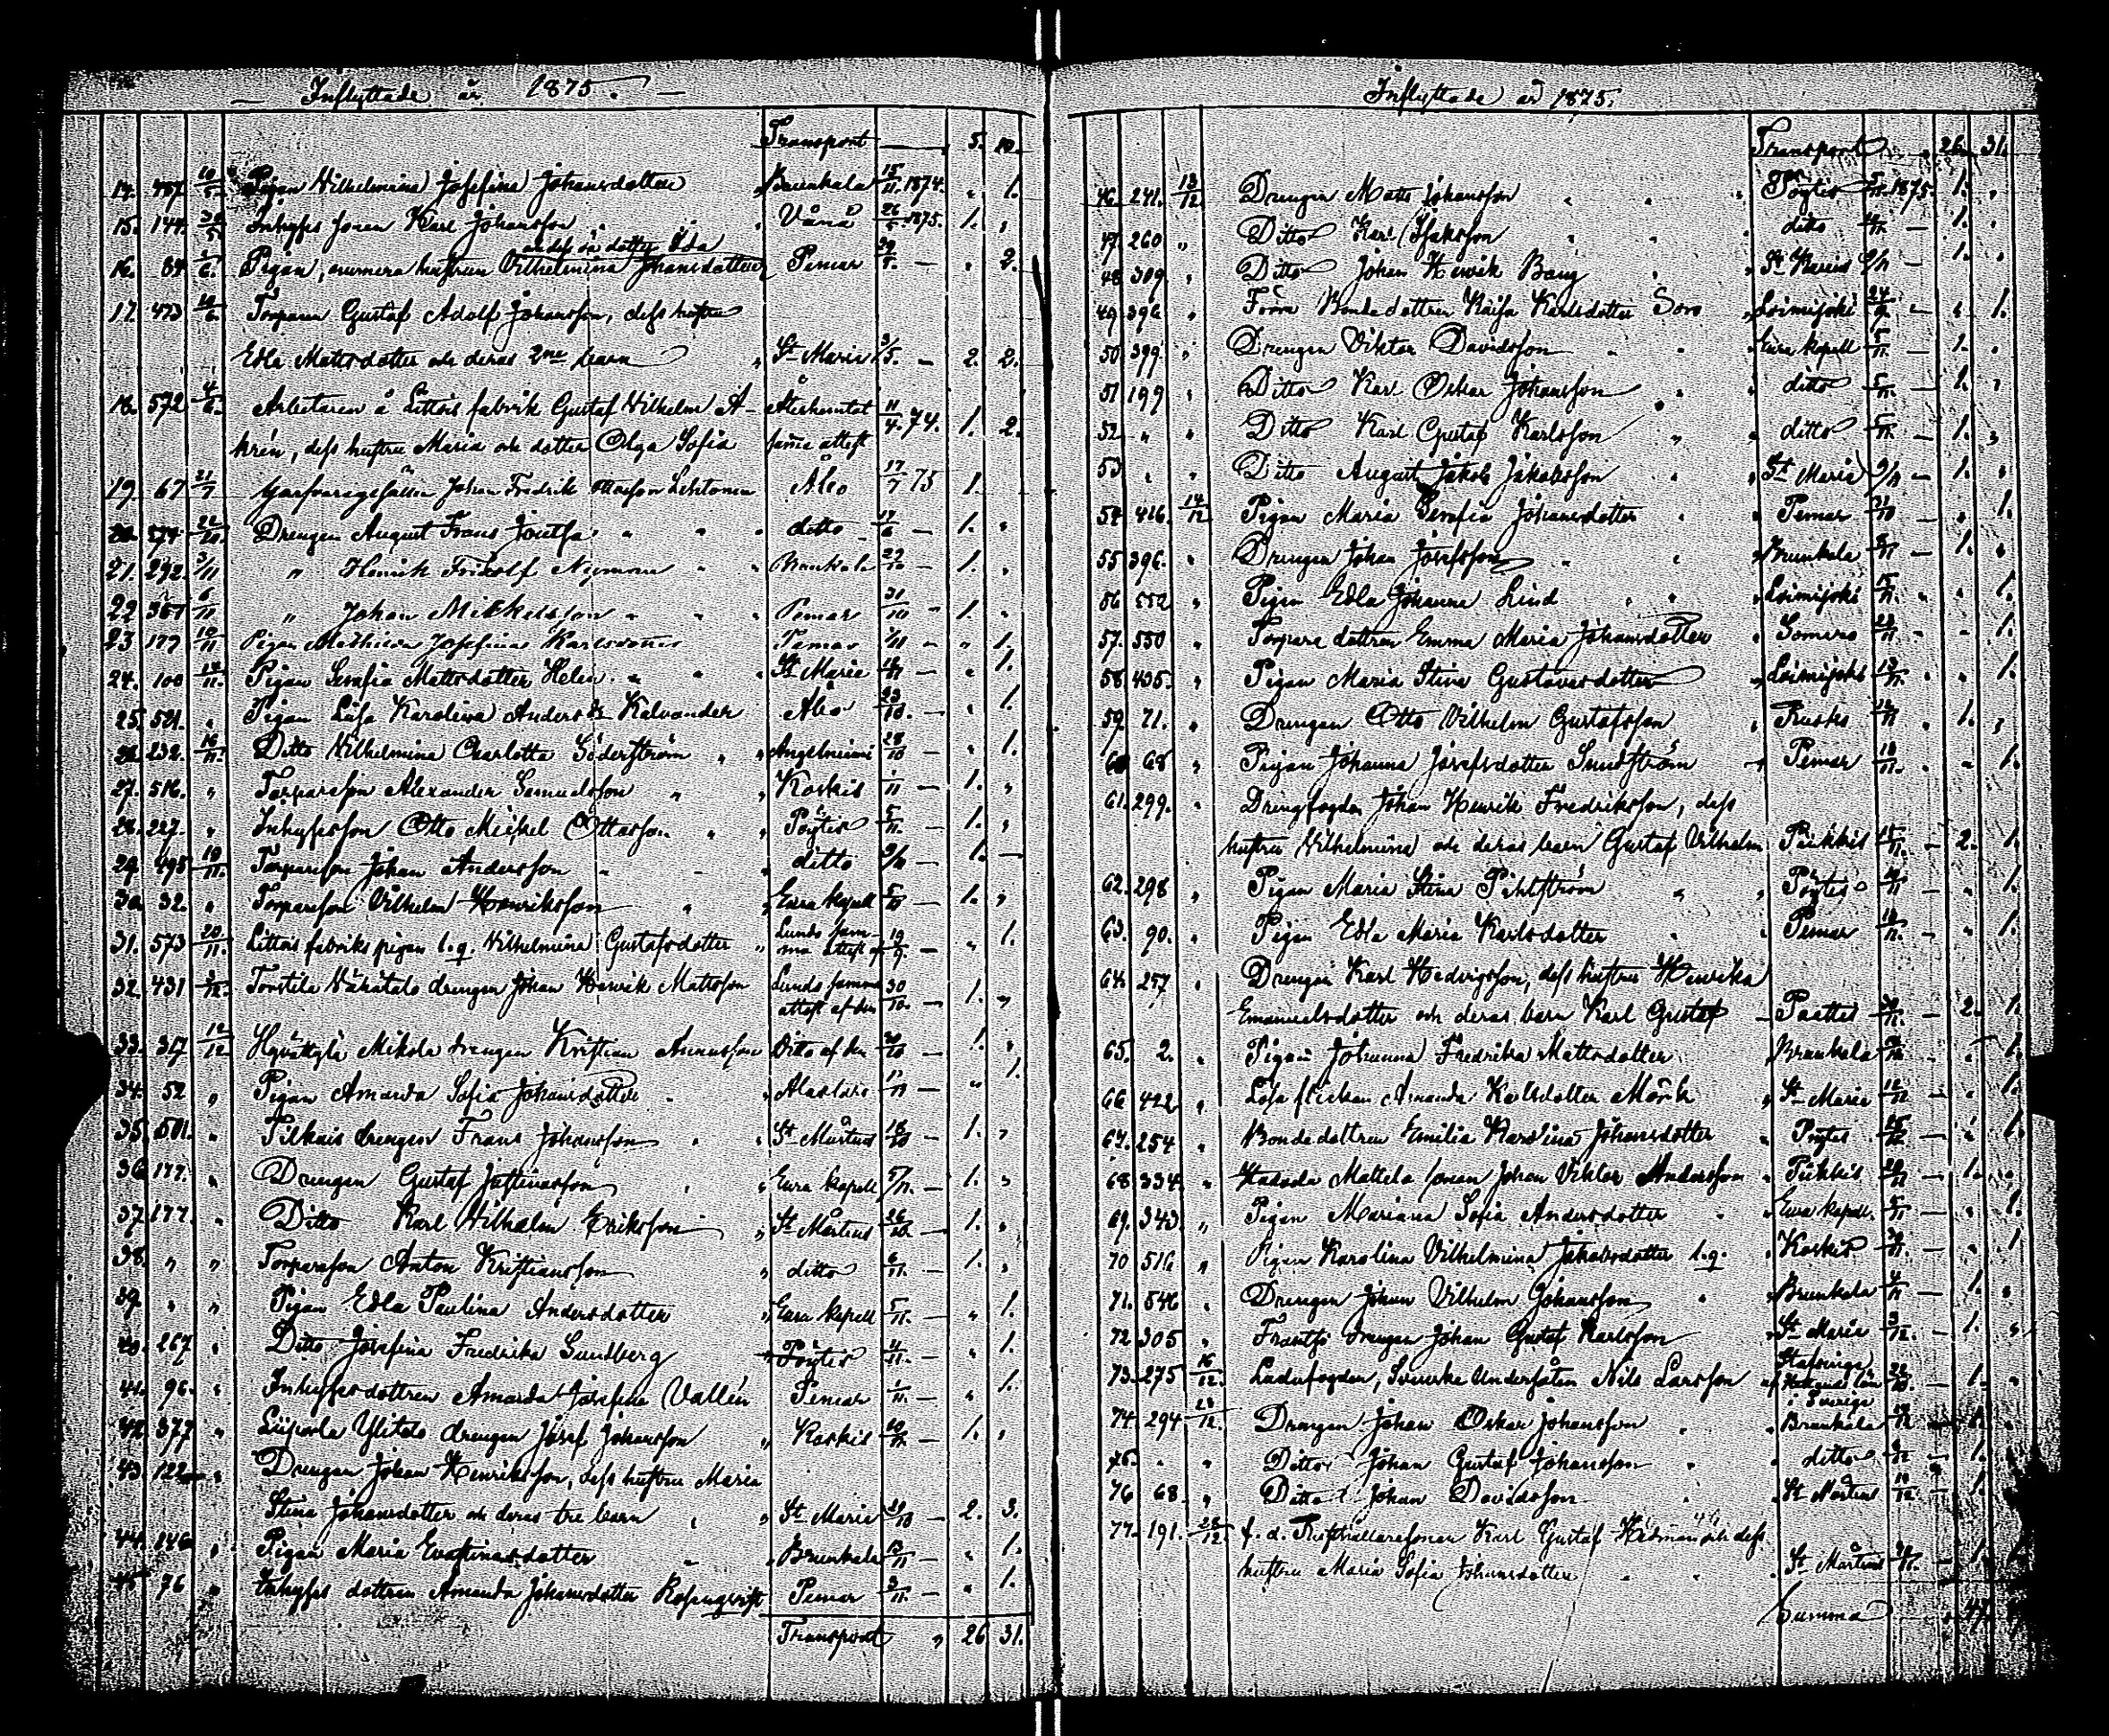 Inflyttade år 1875.
Transport — 5. 10.
14. 757. 10/5. Pigan Vilhelmina Josefina Johansdotter " Brunkala 15/11. 1874. " 1.
15. 144. 30/5 Inhyses sonen Karl Johansson Vånå 26/5. 1875. 1. "
andess oä dotter Ida
16. 84. /6. Pigan, numera hustrun Vilhelmina Johansdotter Pemar — " 2.
17. 473 /6. Torparen Gustaf Adolf Johansson, dess hustru
Edla Mattsdotter och deras 2ne barn " St Marie 3/5. — 2. 2.
18. 572 4/6. Arbetaren å Littois fabrik Gustaf Vilhelm A- 11/4. 74. 1. 2.
krén, dess hustru Maria och dotter Olga Sofia samma attest
19. 67 21/7 Garfvaregesällen Johan Fredrik Lehtonen Åbo 17/7 75 1.
20. 574 22/10. Drengen August Frans " ditto 14/6 — 1. "
21. 292. 3/11 " Henrik Fridolf Nyman " Brunkala 22/10 — 1. "
22 361 6/11 " Johan Mickelsson " Pemar 31/10 — 1. "
23 177 10/11 Pigan Mathilda Josefina Karlsdotter Pemar 7/11 — " 1.
24. 100 14/11. Pigan Serafia Mattsdotter Helin " St Marie — " 1.
25. 521. " Pigan Lisa Karolina Anders dr Kalvander Åbo 23/10. — " 1.
26. 232. 16/11. Ditto Vilhelmina Charlotta Söderström " Angelniemi 28/10 — " 1.
27. 516. " Torpareson Alexander Samuelsson " Koskis 1/11 — 1. "
28. 227. " Inhysesson Otto Mickel Ottosson " Pöytis 5/11. — 1. "
29. 495 19/11. Torpareson Johan Andersson ditto 9/11 — 1. —
30. 32. " Torpareson Vilhelm Henriksson " Eura kapell 5/10 — 1. "
31. 573 20/11. Littois fabriks pigan l.q. Vilhelmina Gustafsdotter " Lunds sam-
ma attest af 19/9. — " 1.
32. 431 3/12. Torstila Näkätalo drengen Johan Henrik Mattsson Lunds samma
attest af den 30/10. — 1. "
33. 317 12/12. Hyvättylä Mikola drengen Kristian Ditto af den 30/10 — 1. "
34. 52 " Pigan Amanda Sofia Johansdotter " Alastaro 1/11 — " 1.
35. 501. " Tilkais drengen Frans Johansson " St Mårtens 18/10 — 1. "
36. 177. " Drengen Gustaf Justinasson " Eura kapell 5/11. — 1. "
37. 177. " Ditto Karl Vilhelm Eriksson " St Mårtens 26/10. — 1. "
38. " " Torpareson Anton Kristiansson " ditto 6/11. — 1. "
39. " " Pigan Edla Paulina Andersdotter " Eura kapell 5/11. — " 1.
40. 267 " Ditto Josefina Fredrika Sundberg " Pöytis 4/11. — " 1.
41. 96. " Inhysesdottren Amanda Josefina Vallén Pemar 1/11. — " 1.
42. 377 " Ylitalo drengen Josef Johansson " Koskis 10/11. — 1. "
43. 122 " Drengen Johan Henriksson, dess hustru Maria
Stina Johansdotter och deras tre barn " St Marie 29/10 — 2. 3.
44. 146 " Pigan Maria Evastinasdotter " Brunkala 13/11 — " 1.
45 76 " Inhyses dottren Amanda Johansdotter Rosengvist Pemar 3/11. — " 1.
Transport " 26 31.
Inflyttade år 1875.
Transport " 26. 31.
46. 241. 13/12. Drengen Matts Johansson " Pöytis 5/11. 1875. 1. "
47 260 " Ditto Karl Isaksson ditto 4/11. — 1. "
48 309 " Ditto Johan Henrik Berg " St Karins 9/11 — 1. "
49 396 " Förra Bondedottren Kaisa Karlsdotter Soro " Loimijoki 24/9. — " 1.
50 399 " Drengen Viktor Davidsson " Eura kapell 5/11. — 1. "
51 199 " Ditto Karl Oskar Johansson " ditto 5/11. — 1. "
52 " " Ditto Karl Gustaf Karlsson " ditto 5/11. — 1. "
53 " " Ditto August Jakob Jakobsson " St Marie 9/11 — 1. "
54 416. 14/12 Pigan Maria Serafia Johansdotter " Pemar 31/10 — " 1.
55 396. " Drengen Johan Josefsson " Brunkala /11 — 1. "
56 552 " Pigan Edla Johanna Lind " Loimijoki 15/11. " " 1.
57. 550 " Torpare dottren Emma Maria Johansdotter " Somero 23/11 — " 1.
58 435. " Pigan Maria Stina Gustavasdotter " Loimijoki 13/11. — " 1.
59. 71. " Drengen Otto Vilhelm Gustafsson " Rusko 12/11 " 1. "
60 68 " Pigan Johanna Josefsdotter Sundström " Pemar 18/11. — " 1.
61. 299. " Drengfogden Johan Henrik Fredriksson, dess
hustru Vilhelmina och deras barn Gustaf Vilhelm Piikkis 15/11. — 2. 1.
62. 298 " Pigan Maria Stina Pihlström " Pöytis — " 1.
63. 90. " Pigan Edla Maria Karlsdotter " Pemar 18/11. — " 1.
64. 257 " Drengen Karl Hedvigsson, dess hustru Henrika
Emanuelsdotter och deras barn Karl Gustaf — Paattis — 2. 1.
65. 2. " Pigan Johanna Fredrika Mattsdotter Brunkala — " 1.
66 422 " Lösa flickan Amanda Karlsdotter Mörk " St Marie 12/12 — " 1.
67. 254 " Bondedottren Emilia Karolina Johansdotter " Pöytis — " 1.
68 334 " Mattila sonen Johan Viktor Andersson " Piikkis — 1. "
69. 343. " Pigan Mariana Sofia Andersdotter " Eura kapell. 5/11 — " 1.
70 516 " Pigan Karolina Vilhelmina Jakobsdotter l.q. " Koskis — " 1.
71. 546 " Drengen Johan Vilhelm Johansson " Brunkala — 1. "
72 305 " drengen Johan Gustaf Karlsson " St Marie 3/12. — 1. "
73 275 16/12. Ladufogden, Svenska Undersåten Nils Larsson af län i Sverige — 1. "
74. 294 /12. Drengen Johan Oskar Johansson " Brunkala — 1.
75. " " Ditto Johan Gustaf Johansson " ditto — 1.
76 68 " Ditto Johan Davidsson " St Mårtens — 1.
77. 191. 28/12. f. d. sonen Karl Gustaf Hedman och dess
hustru Maria Sofia Johansdotter " St Mårtens — 1. 1.
Summa